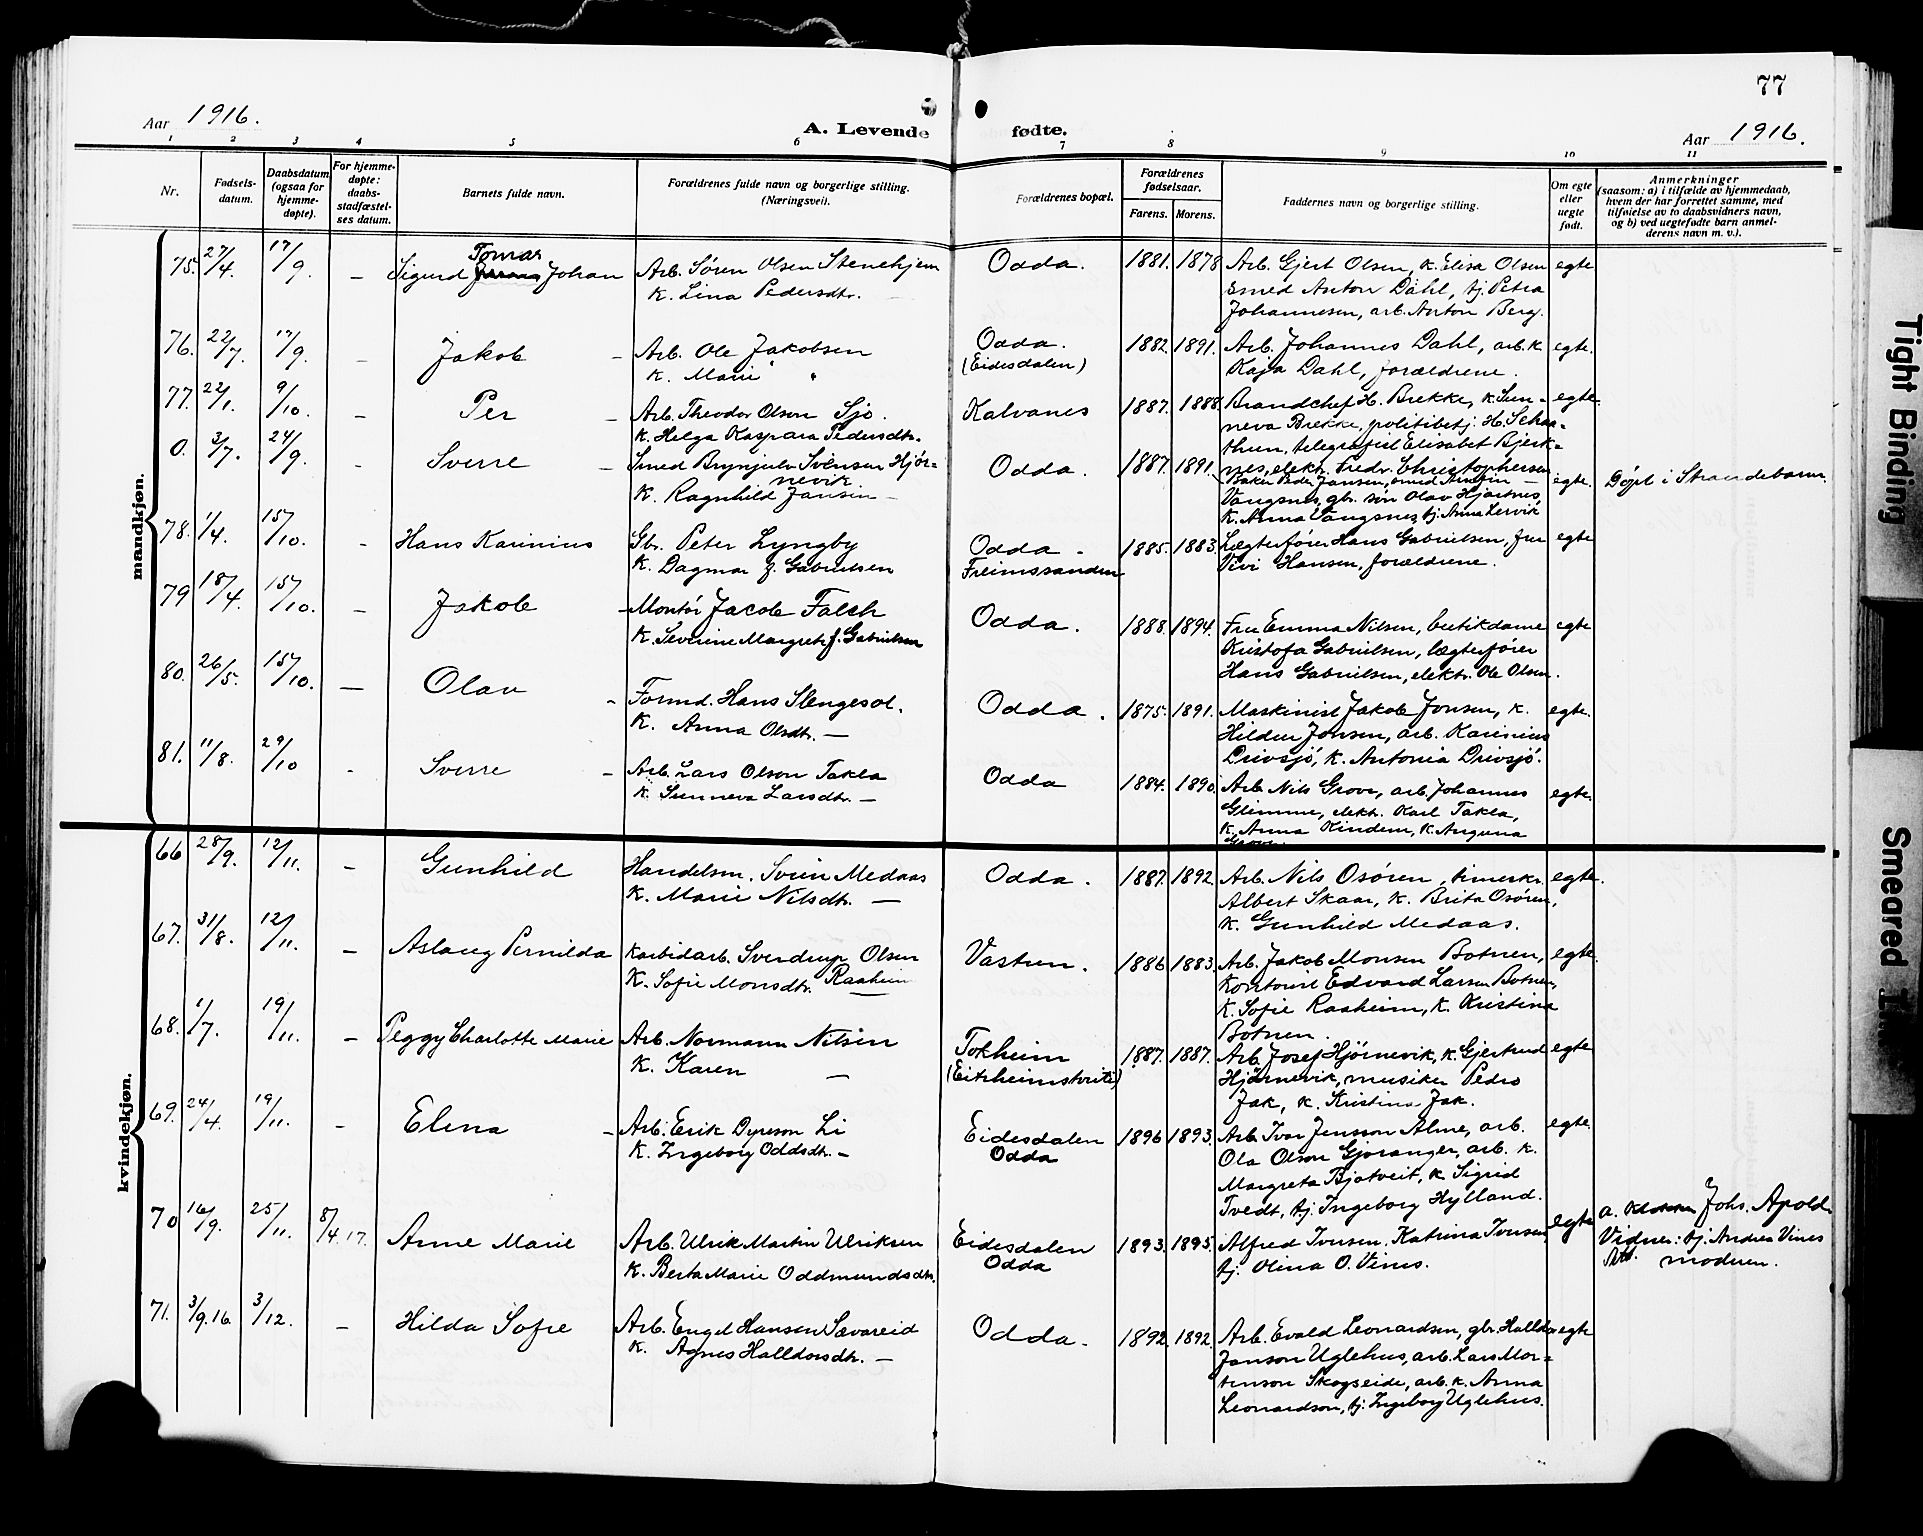 77
Aar 1916.
A. Levende fødte.
Aar 1916.
1 2 3 4 5 6 7 8 9 10 11
Nr.
Fødsels-
datum.
Daabsdatum
(ogsaa for
hjemme-
døpte).
For hjemme-
døpte:
daabs-
stadfæstel-
ses datum.
Barnets fulde navn.
Forældrenes fulde navn og borgerlige stilling.
(Næringsvei).
Forældrenes bopæl.
Forældrenes
fødselsaar.
Farens. Morens.
Faddernes navn og borgerlige stilling.
Om egte
eller
uegte
født.
Anmerkninger
(saasom: a) i tilfælde av hjemmedaab,
hvem der har forrettet samme, med
tilføielse av to daabsvidners navn,
og b) ved uegtefødte barn anmel-
derens navn m. v.).
mandkjøn.
75. 27/4. 17/9. –
Tomas
Sigurd Johan
Arb. Søren Olsen Stenehjem
K. Lina Pedersdtr. –
Odda. 1881. 1878
Arb. Gjert Olsen, K. Elisa Olsen
Smed Anton Dahl, tj. Petra
Johannesen, arb. Anton Berg.
egte
76. 22/7. 17/9. –
Jakob –
Arb. Ole Jakobsen
K. Marie "
Odda.
(Eidesdalen)
1882. 1891.
Arb. Johannes Dahl, arb. K
Kaja Dahl, forældrene.
egte.
77. 22/1. 9/10. –
Per –
Arb. Theodor Olson Sjo.
K. Helga Kaspara Pedersdtr.
Kalvanes 1887. 1888.
Brandchef H. Brekke, K. Sun-
neva Brekke, politibetj. H. Schaa-
thun, telegrafist Elisabet Bjerk-
nes, elektr. Fredr. Christophersen
egte.
0. 3/7. 24/9. –
Sverre –
Smed Brynjulv Svensen Hjør-
nevik
K. Ragnhild Jansen –
Odda. 1887. 1891.
Baker Peder Jansen, smed
Vangsnes, gbr. søn Olav Hjartnes,
K. Anna Vangsnes, tj. Anna Lervik
egte.
Døpt i Strandebarm.
78. 1/4. 15/10. –
Hans Karinius
Gbr. Peter Lyngby
K. Dagmar f. Gabrielsen
Odda –
Freimssanden
1885. 1883.
Lægterfører Hans Gabrielsen, fru
Vivi Hansen, forældrene.
egte
79 18/4. 15/10. –
Jakob
–Montør Jacob Falch
K. Severine Margrete f. Gabrielsen
Odda. 1888. 1894.
Fru Emma Nilsen, butikdame
Kristofa Gabrielsen, lægterfører
Hans Gabrielsen, elektr. Ole Olsen.
egte
80. 26/5. 15/10. –
Olav –
Formd. Hans Slengesol.
K. Anna Olsdtr. –
Odda. 1875. 1891.
Maskinist Jakob Jonsen, K.
Hildur Jonsen, arb. Karinius
Drivsjø, K. Antonia Drivsjø.
egte.
81. 11/8. 29/10 –
Sverre –
Arb. Lars Olson Takla
K. Sunneva Larsdtr. –
Odda 1884. 1890.
Arb. Nils Grove, arb. Johannes
Glimme, elektr. Karl Takla,
K. Anna Kindem, K. Angunna
Grove.
egte.
kvindekjøn.
66 28/9. 12/11. –
Gunhild
Handelsm. Svein Medaas
K. Marie Nilsdtr. –
Odda. 1887. 1892.
Arb. Nils Osøren, timerkr.
Albert Skaar, K. Brita Osøren,
K. Gunhild Medaas.
egte.
67. 31/8. 12/11. –
Aslaug Pernilda
Karbidarb. Sverdrup Olsen
K. Sofie Monsdtr. Raaheim
Vastun. 1886 1883.
Arb. Jakob Monsen Botnen,
Kontorist Edvard Larsen Botnen,
K. Sofie Raaheim, K. Kristina
Botnen.
egte.
68. 1/7. 19/11. –
Peggy Charlotte Marie
Arb. Normann Nilsen
K. Karen –
Tokheim
(Eitrheimstveiti)
1887. 1887.
Arb. Josef Hjørnevik, K. Gjertrud
Hjørnevik, musiker Pedro
Jak, K. Kristina Jak.
egte
69. 24/4. 19/11. –
Elena –
Arb. Erik Dyreson Li
K. Ingeborg Oddsdtr. –
Eidesdalen
Odda
1896 1893.
Arb. Ivar Jensson Alme, arb.
Ola Olson Gjøranger, arb. K.
Margreta Bjotveit, K. Sigrid
Tvedt, tj. Ingeborg Hylland.
egte.
70 16/9. 25/11. 8/4.17.
Anne Marie
Arb. Ulrik Martin Ulriksen
K. Berta Marie Oddmundsdtr.
Eidesdalen
Odda
1893. 1895.
Alfred Iversen. Katrina Iversen,
tj. Olina O. Vines.
egte
a. Johs. Apold
Vidner: tj. Andrea Vines
moderen.
71. 3/9.16. 3/12. –
Hilda Sofie
Arb. Engel Hansen Sævareid
K. Agnes Halldorsdtr. –
Odda. 1892. 1892.
Arb. Evald Leonardsen, gbr. Halldor
Janson Uglehus, arb. Lars Mor-
tenson Skogseide, arb. K. Anna
Leonardson, tj. Ingeborg Uglehus.
egte
Tight Binding
Smeared